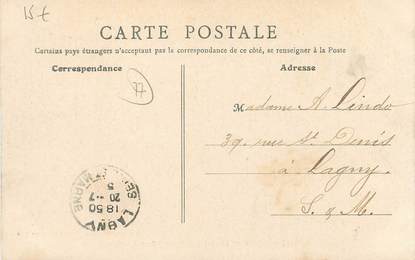 15 €
CARTE POSTALE
Certains pays étrangers n'acceptant pas la correspondance de ce côté, se renseigner à la Poste
Correspondance
Adresse
77
Madame A. Lindo
39 rue St Denis
à Lagny.
S. & M.
LAGNY
18 50
20 -7
5
MARNE